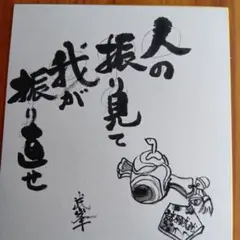 人の
振り見て
我が
振り直せ